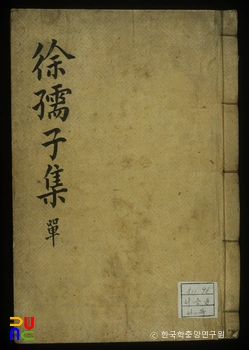 徐孺子集 單
ⓒ 한국학중앙연구원